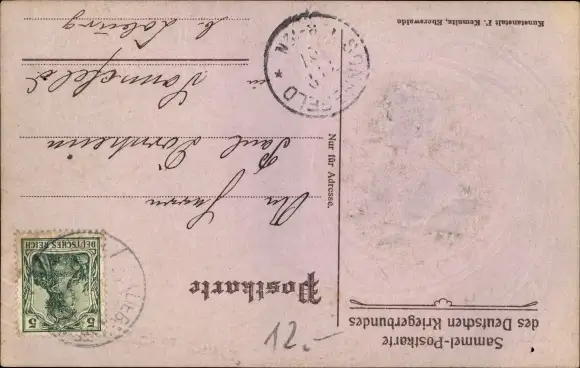 Sammel-Postkarte
des Deutschen Kriegerbundes
Postkarte
5
DEUTSCHES REICH
An Herrn
Paul Dornheim
in Sonnefeld
b. Coburg
Nur für Adresse.
SONNEFELD
Kunstanstalt F. Kemnitz, Eberswalde
12.-